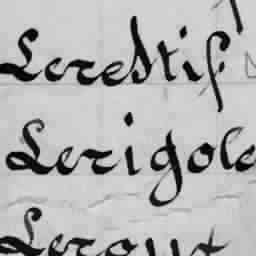 Lerestif
Lerigole
Leroux